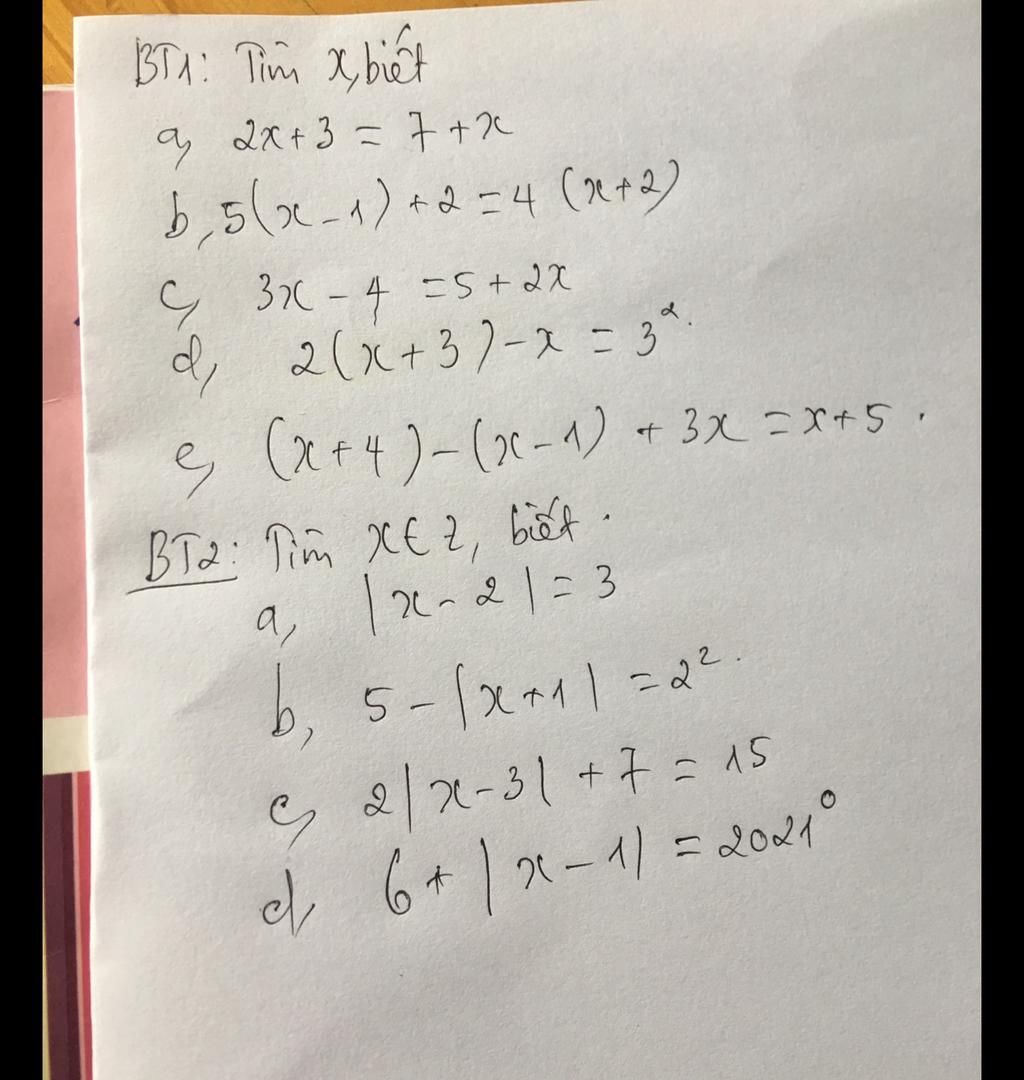 BT1: Tìm x, biết
a, 2x + 3 = 7 + x
b, 5(x - 1) + 2 = 4 (x + 2)
c, 3x - 4 = 5 + 2x
d, 2(x + 3) - x = 3².
e, (x + 4) - (x - 1) + 3x = x + 5.
BT2: Tìm x ∈ Z, biết.
a, |x - 2| = 3
b, 5 - |x + 1| = 2².
c, 2|x - 3| + 7 = 15
d, 6 + |x - 1| = 2021⁰